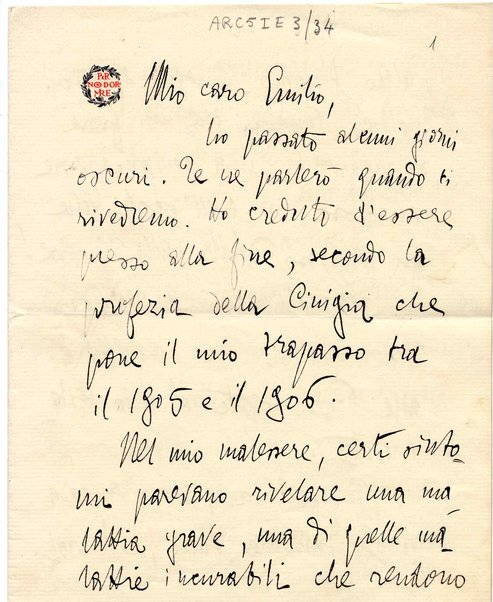 ARC5IE3/34
1
PER
NON DOR
MIRE
Mio caro Emilio,
ho passato alcuni giorni
oscuri. Te ne parlerò quando ci
rivedremo. Ho creduto d'essere
presso alla fine, secondo la
profezia della Cinigia che
pone il mio trapasso tra
il 1905 e il 1906.
Nel mio malessere, certi sinto-
mi parevano rivelare una ma
lattia grave, una di quelle ma
lattie incurabili che rendono